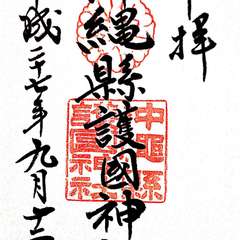 拝
縄縣護國神
成二十七年九月十